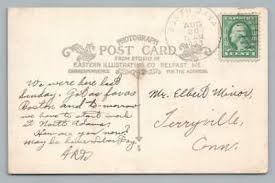 PHOTOGRAPH
POST CARD
FROM STUDIO OF
EASTERN ILLUSTRATING CO. BELFAST ME.
CORRESPONDENCE
We were here last
Sunday. Got as far as
Boston and to-morrow
we have to start work
in North Adams.
How are you now?
May be home Labor Day.
Mr. Elbert Minor,
Terryville,
Conn.
AUG